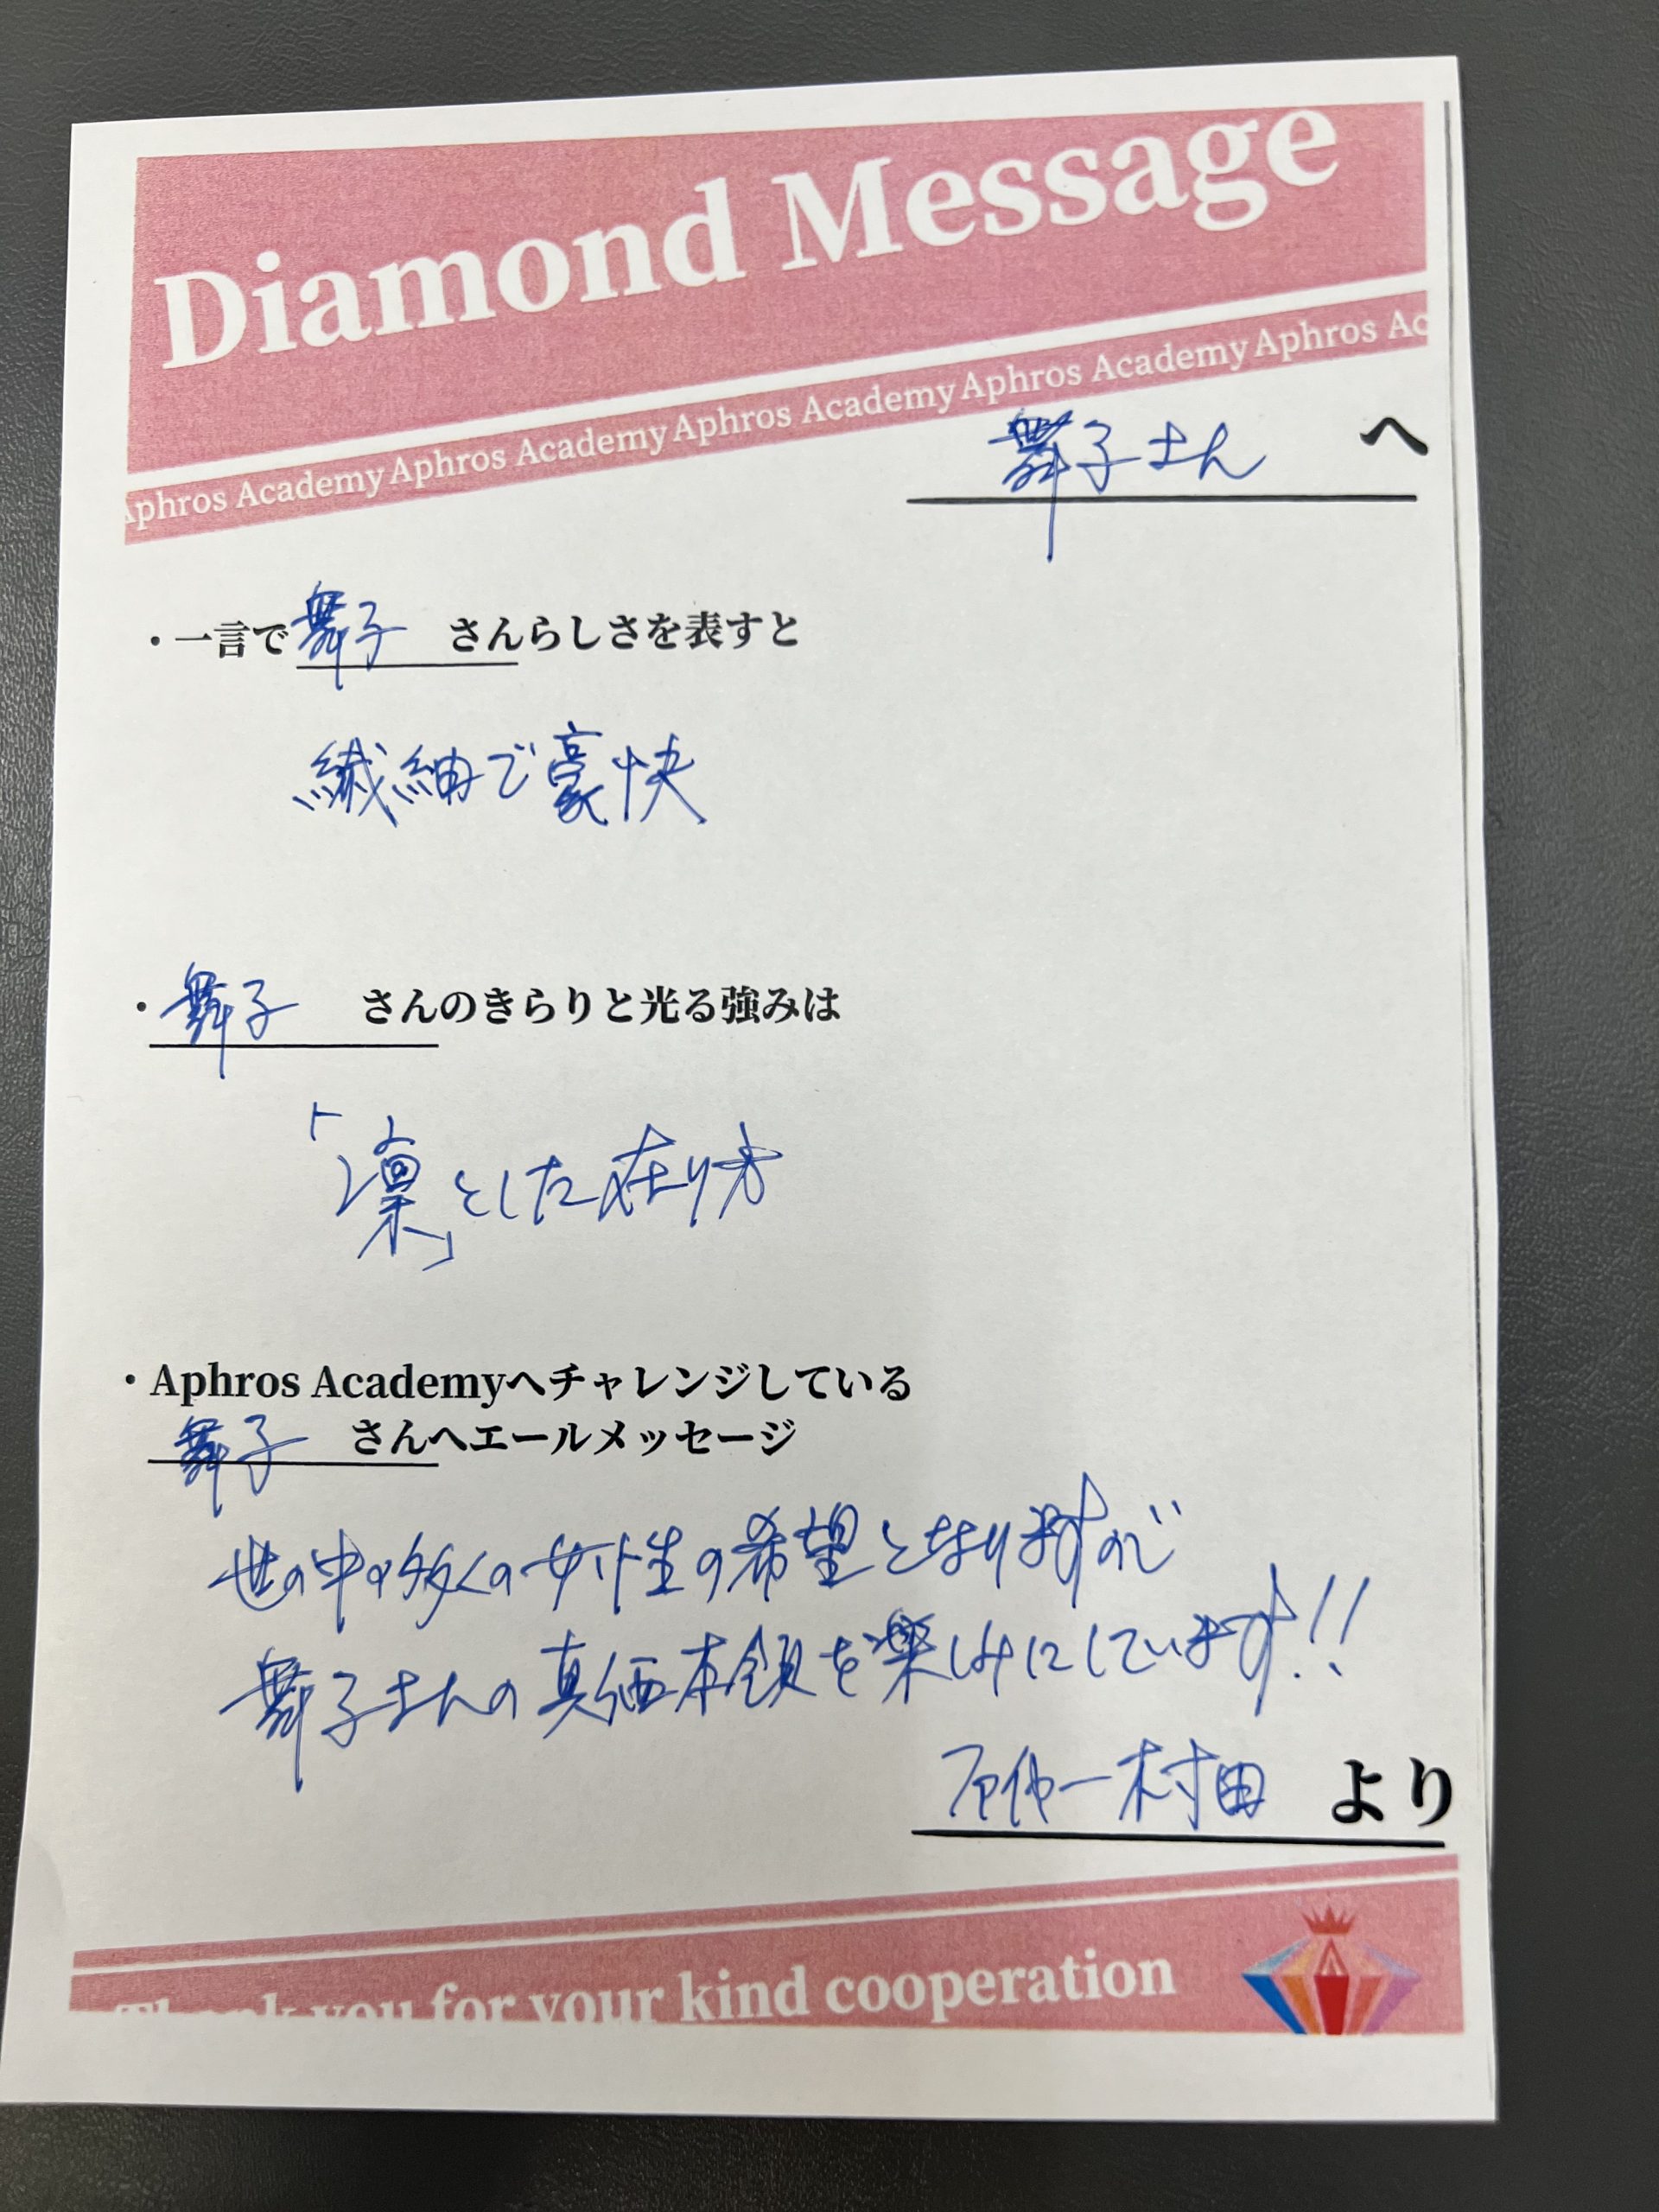 Diamond Message
Aphros Academy Aphros Academy Aphros Academy Aphros Ac
舞子さん へ
・一言で舞子 さんらしさを表すと
繊細で豪快
・舞子 さんのきらりと光る強みは
「凛」とした在り方
・Aphros Academyへチャレンジしている
舞子 さんへエールメッセージ
世の中の多くの女性の希望となりますので
舞子さんの真価本領を楽しみにしています!!
村田 より
Thank you for your kind cooperation